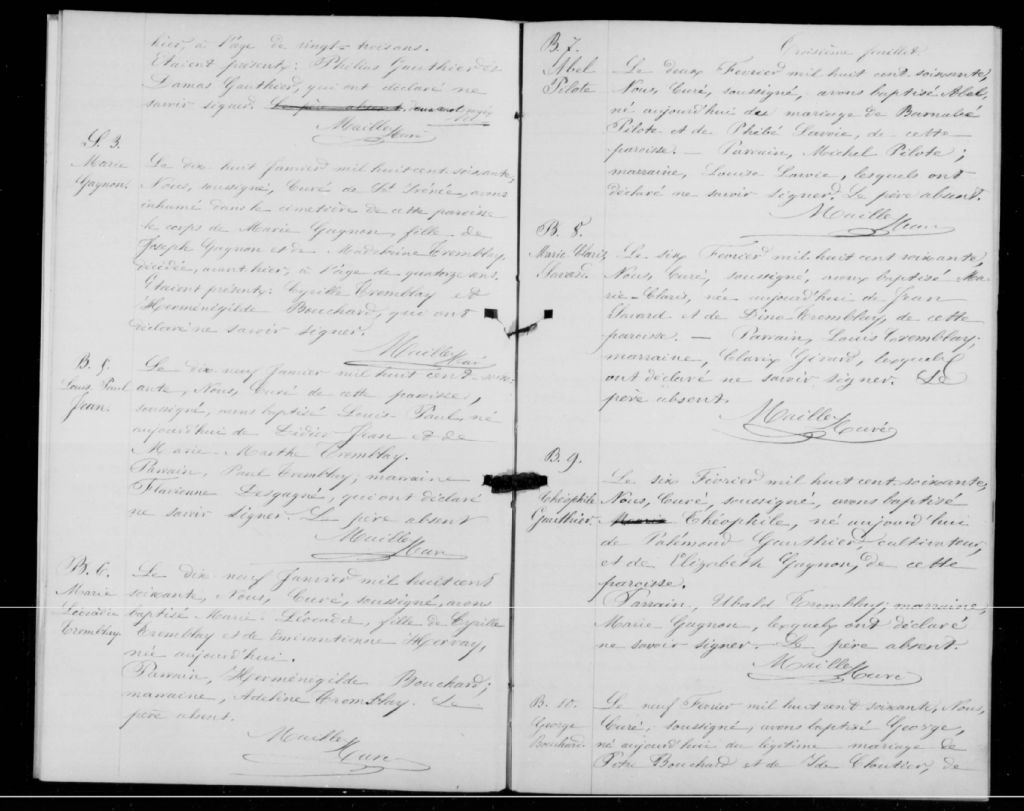 hier, à l'âge de vingt-trois ans.
Etaient présents: Phélias Gauthier et
Damas Gauthier, qui ont déclaré ne
savoir signer. Le père absent.
Maille Curé
S. 3.
Marie
Gagnon.
Le dix huit Janvier mil huit cent soixante,
Nous, soussigné, Curé de St Irénée, avons
inhumé dans le cimetière de cette paroisse
le corps de Marie Gagnon, fille de
Joseph Gagnon et de Madeleine Tremblay,
décédée, avant hier, à l'âge de quatorze ans.
Etaient présents: Cyrille Tremblay et
Herménégilde Bouchard, qui ont
déclaré ne savoir signer.
Maille Curé
B. 5.
Louis Paul
Jean.
Le dix neuf Janvier mil huit cent soix-
ante, Nous, Curé de cette paroisse,
soussigné, avons baptisé Louis Paul, né
aujourd'hui de Didier Jean et de
Marie Marthe Tremblay.
Parrain, Paul Tremblay; marraine
Flavienne Desgagné, qui ont déclaré
ne savoir signer. Le père absent
Maille Curé
B. 6.
Marie
Léocadie
Tremblay.
Le dix neuf Janvier mil huit cent
soixante, Nous, Curé, soussigné, avons
baptisé Marie Léocadie, fille de Cyrille
Tremblay et de Emérantienne Hervay,
née aujourd'hui.
Parrain, Herménégilde Bouchard;
marraine, Adeline Tremblay. Le
père absent.
Maille Curé
Troisième feuillet
B. 7.
Abel
Pilote
Le deux Fevrier mil huit cent soixante,
Nous, Curé, soussigné, avons baptisé Abel,
né aujourd'hui du mariage de Barnabé
Pilote et de Phébé Lavoie, de cette
paroisse. — Parrain, Michel Pilote;
marraine, Louise Lavoie, lesquels ont
déclaré ne savoir signer. Le père absent.
Maille Curé
B. 8.
Marie Claris
Savard.
Le six Fevrier mil huit cent soixante,
Nous, Curé, soussigné, avons baptisé Ma-
rie-Claris, née aujourd'hui de Jean
Savard et de Dina Tremblay, de cette
paroisse. — Parrain, Louis Tremblay;
marraine, Clarix Girard, lesquels
ont déclaré ne savoir signer. Le
père absent.
Maille Curé
B. 9.
Théophile
Gauthier.
Le six Février mil huit cent soixante,
Nous, Curé, soussigné, avons baptisé
Marie Théophile, né aujourd'hui
de Palémond Gauthier, cultivateur,
et de Elizabeth Gagnon, de cette
paroisse.
Parrain, Ubald Tremblay; marraine,
Marie Gagnon, lesquels ont déclaré
ne savoir signer. Le père absent.
Maille Curé
B. 10.
George
Bouchard.
Le neuf Fevrier mil huit cent soixante, Nous,
Curé, soussigné, avons baptisé George,
né aujourd'hui du légitime mariage de
Pitre Bouchard et de Ide Cloutier, de